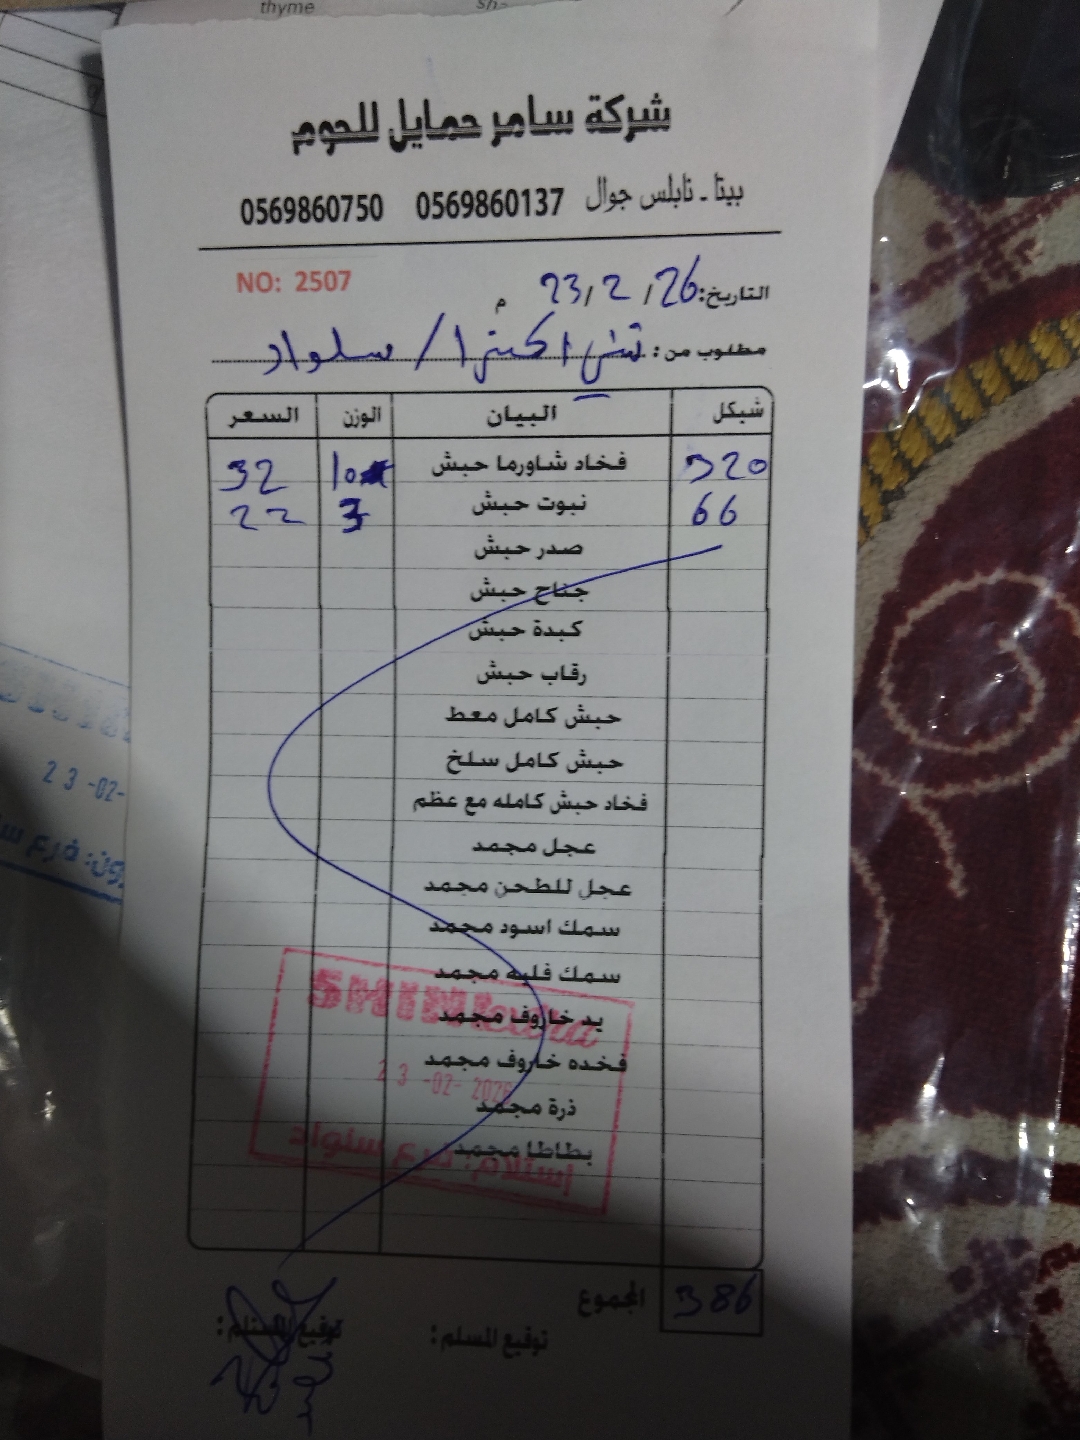 thyme
شركة سامر حمايل للحوم
بيتا - نابلس جوال 0569860137 0569860750
NO: 2507
التاريخ: 23/2/26 م
مطلوب من: اكسترا / سلواد
شيكل البيان الوزن السعر
320 فخاد شاورما حبش 10 32
66 نبوت حبش 3 22
صدر حبش
جناح حبش
كبدة حبش
رقاب حبش
حبش كامل معط
حبش كامل سلخ
فخاد حبش كامله مع عظم
عجل مجمد
عجل للطحن مجمد
سمك اسود مجمد
سمك فليه مجمد
يد خاروف مجمد
فخده خاروف مجمد
ذرة مجمد
بطاطا مجمد
23-02-2026
إستلام: فرع سلواد
المجموع 386
توقيع المسلم: توقيع المستلم:
23-02-